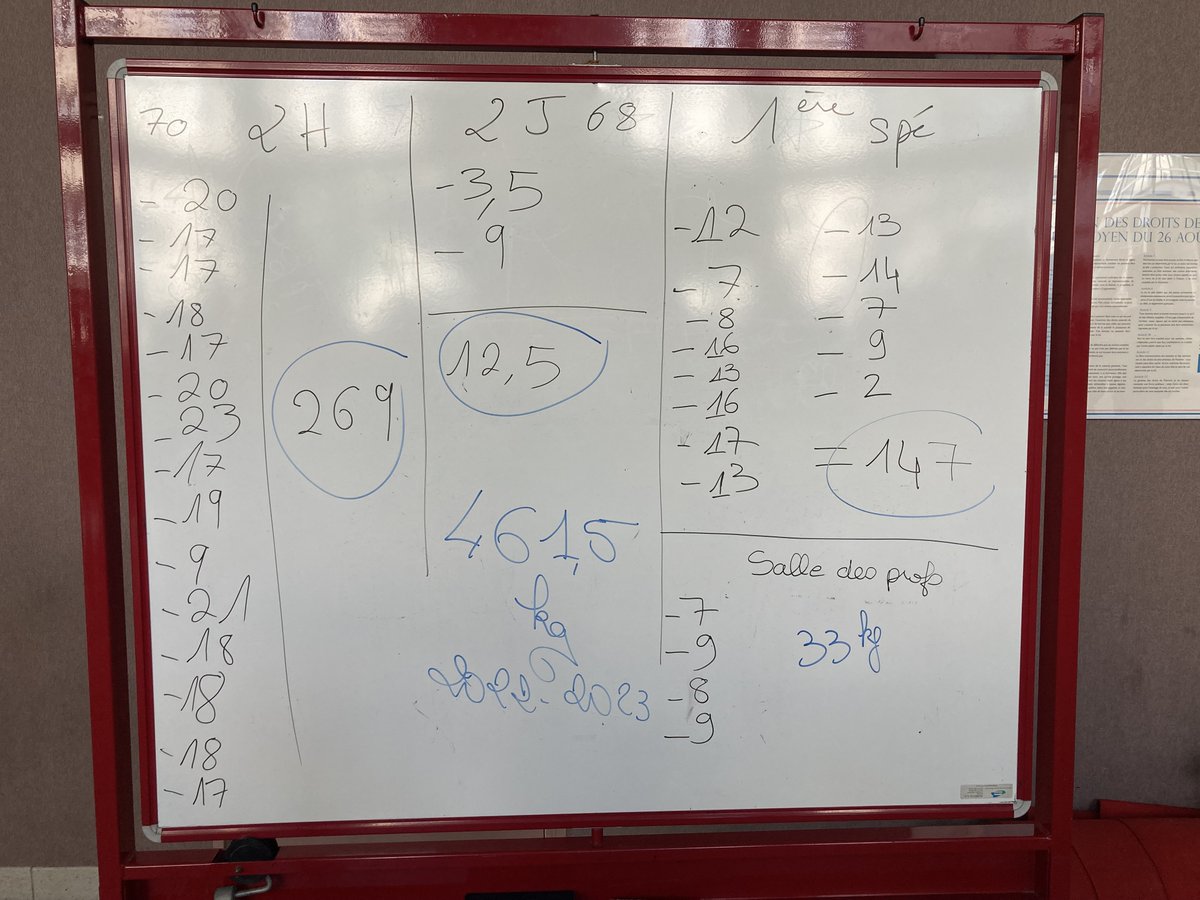 70 2H
- 20
- 17
- 17
- 18
- 17
- 20
- 23
- 17
- 19
- 9
- 21
- 18
- 18
- 18
- 17
269
2 J 68
- 3,5
- 9
12,5
461,5
kg
2022-2023
1ère spé
- 12
- 7
- 8
- 16
- 13
- 16
- 17
- 13
- 13
- 14
- 7
- 9
- 2
= 147
Salle des profs
- 7
- 9
- 8
- 9
33 kg
DES DROITS DE
OYEN DU 26 AOU